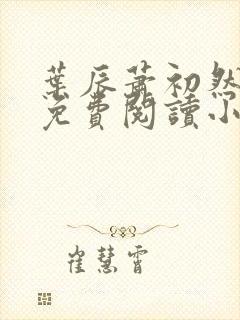 葉辰蕭初然
免費閱讀小
崔慧霄